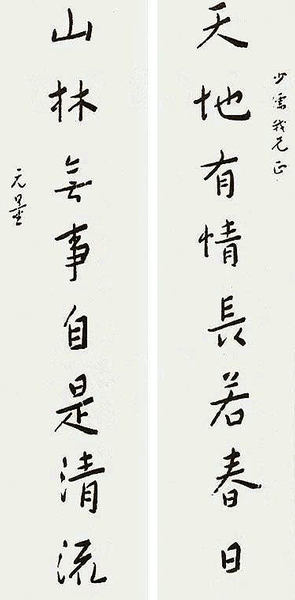 少儒我兄正
天地有情長若春日
山林無事自是清流
元量